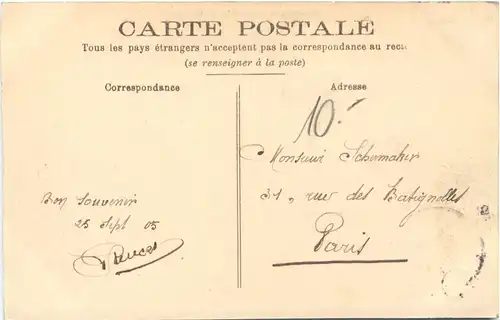 CARTE POSTALE
Tous les pays étrangers n'acceptent pas la correspondance au recto
(se renseigner à la poste)
Correspondance
Adresse
10.-
Monsieur Schumaher
31, rue des Batignolles
Paris
Bon Souvenir
25 Sept 05